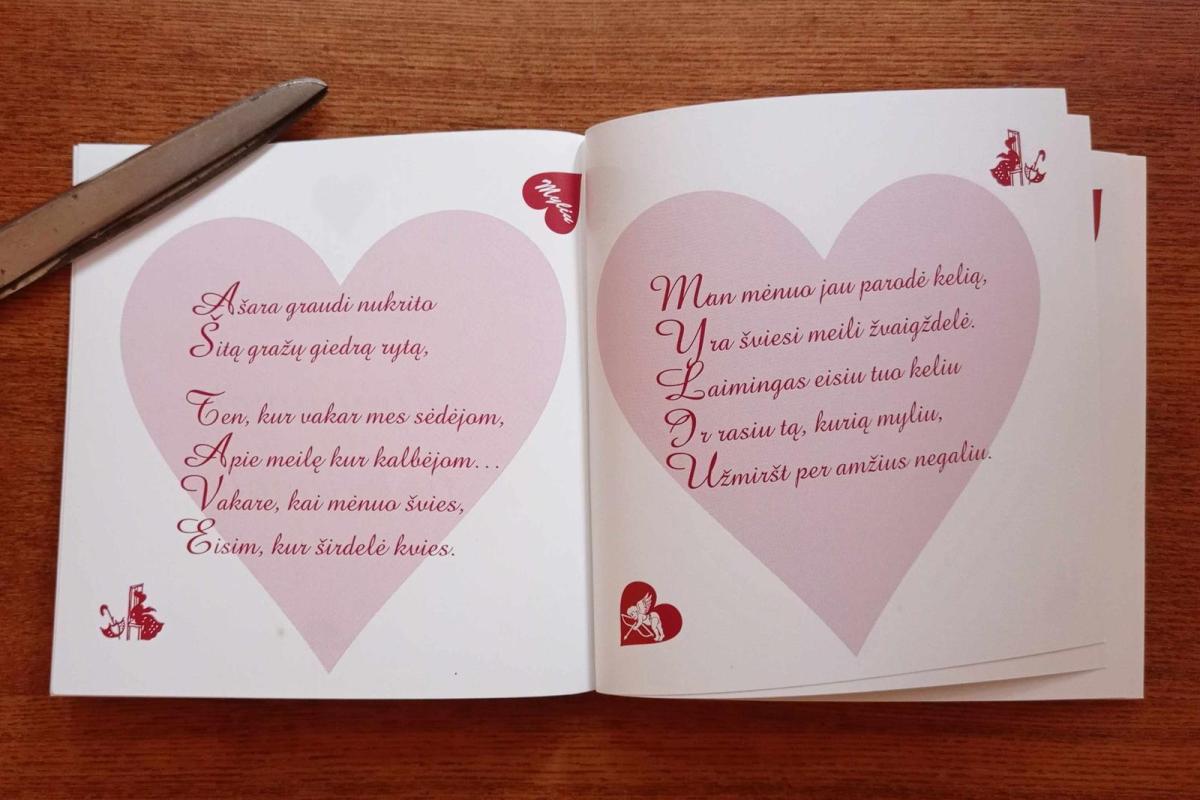 Myliu
Ašara graudi nukrito
Šitą gražų giedrą rytą,
Ten, kur vakar mes sėdėjom,
Apie meilę kur kalbėjom...
Vakare, kai mėnuo švies,
Eisim, kur širdelė kvies.
Man mėnuo jau parodė kelią,
Yra šviesi meili žvaigždelė.
Laimingas eisiu tuo keliu
Ir rasiu tą, kurią myliu,
Užmiršt per amžius negaliu.